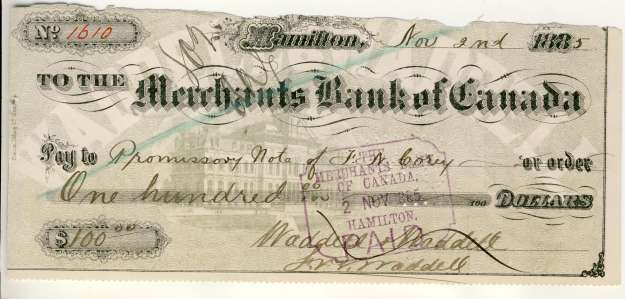 No 1510 Hamilton, Nov 2nd 1885
TO THE Merchants Bank of Canada
Pay to Promissory Note of F. W. Corey or order
One hundred 00/100 DOLLARS
THE
MERCHANTS
OF CANADA.
2 NOV 885
HAMILTON.
PAID
$100 00
Waddell & Waddell